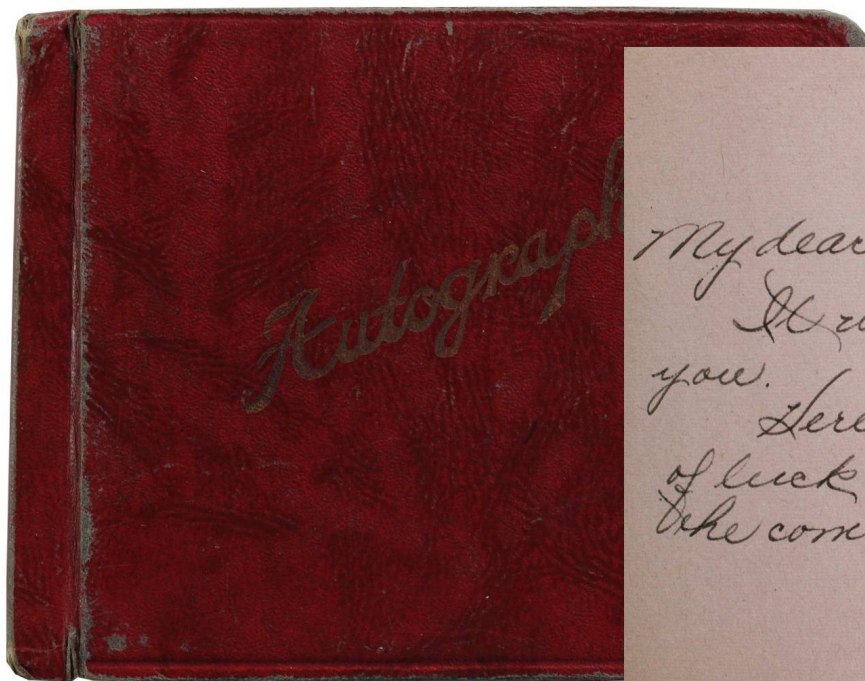 Autograph
My dear
It
you.
Here
of luck
the com